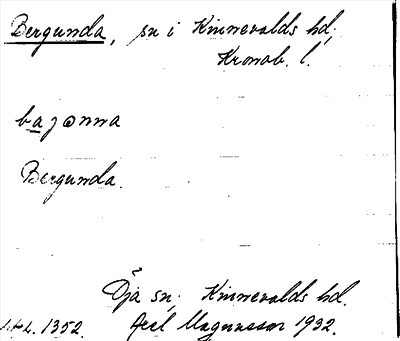 Bergunda, sn i Kinnevalds hd,
Kronob. l.
bajonna
Bergunda.
Öja sn, Kinnevalds hd.
1352. Axel Magnusson 1932.